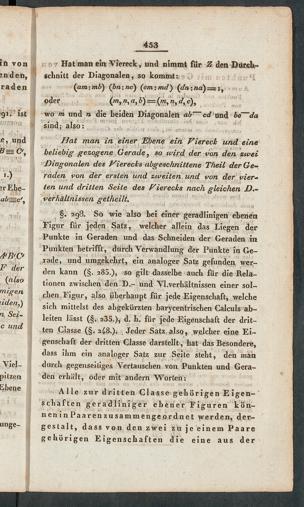 453
Hat man ein Viereck, und nimmt für Z den Durch-
schnitt der Diagonalen, so kommt:
(am:mb) (bn:nc) (cm:md) (dn:na)=1,
oder (m,n,a,b)=(m,n,d,c),
wo m und n die beiden Diagonalen ab‾cd und bc‾da
sind; also:
Hat man in einer Ebene ein Viereck und eine
beliebig gezogene Gerade, so wird der von den zwei
Diagonalen des Vierecks abgeschnittene Theil der Ge-
raden von der ersten und zweiten und von der vier-
ten und dritten Seite des Vierecks nach gleichen D.-
verhältnissen getheilt.
§. 298. So wie also bei einer geradlinigen ebenen
Figur für jeden Satz, welcher allein das Liegen der
Punkte in Geraden und das Schneiden der Geraden in
Punkten betrifft, durch Verwandlung der Punkte in Ge-
rade, und umgekehrt, ein analoger Satz gefunden wer-
den kann (§. 285.), so gilt dasselbe auch für die Rela-
tionen zwischen den D.- und Vl.verhältnissen einer sol-
chen Figur, also überhaupt für jede Eigenschaft, welche
sich mittelst des abgekürzten barycentrischen Calculs ab-
leiten lässt (§. 235.), d. h. für jede Eigenschaft der drit-
ten Classe (§. 248.). Jeder Satz also, welcher eine Ei-
genschaft der dritten Classe darstellt, hat das Besondere,
dass ihm ein analoger Satz zur Seite steht, den man
durch gegenseitiges Vertauschen von Punkten und Gera-
den erhält, oder mit andern Worten:
Alle zur dritten Classe gehörigen Eigen-
schaften geradliniger ebener Figuren kön-
nen in Paaren zusammengeordnet werden, der-
gestalt, dass von den zwei zu je einem Paare
gehörigen Eigenschaften die eine aus der